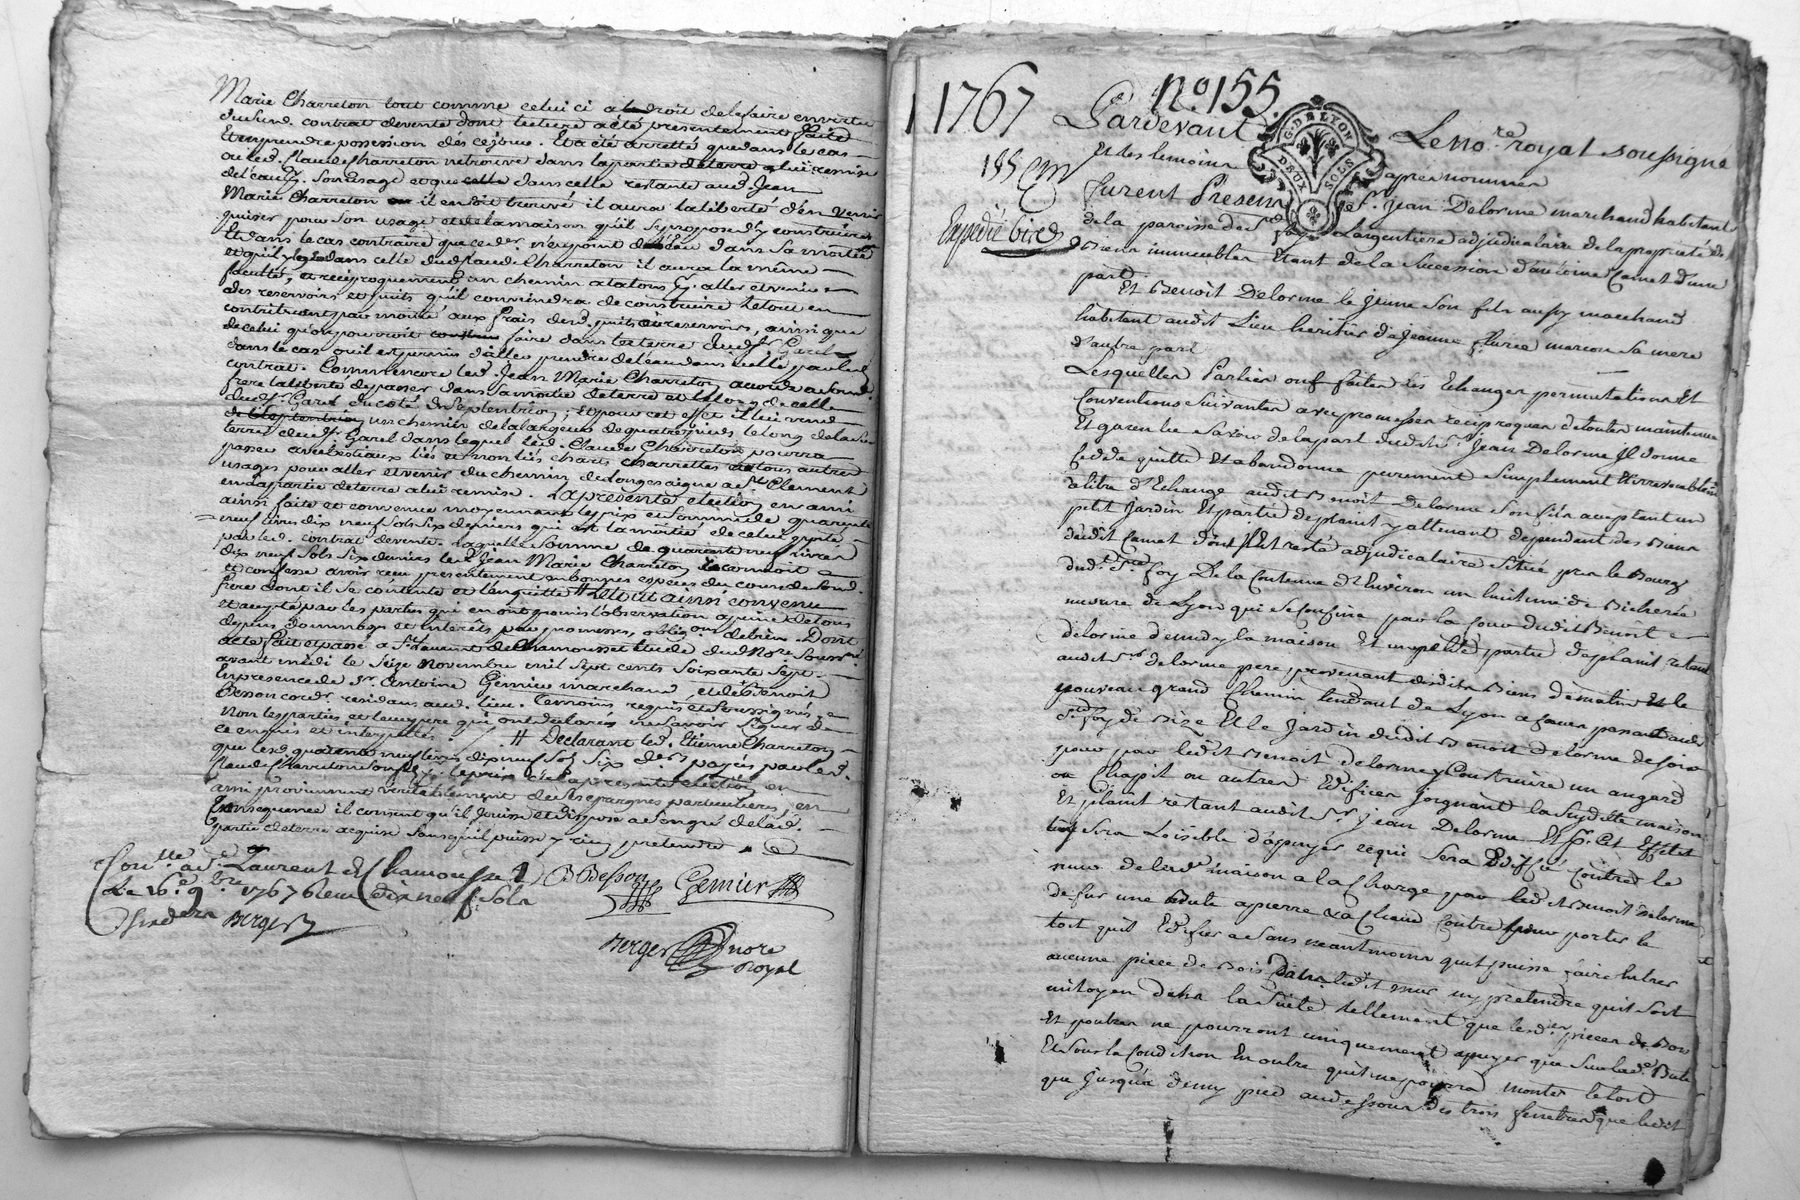 Marie Charreton tout comme celui ci a le droit de le faire en vertu
dusud. contrat de vente dont lecture a été presentement faite
Et en prendre possession dés ce jour. Et a été arretté que dans le cas
ou led. Claude Charreton ne trouve dans la partie de terre a lui remise
de l'eau pr. son usage et que celle dans celle restante aud. Jean
Marie Charreton il en soit trouvé il aura la liberté d'en venir
puiser pour son usage et de la maison qu'il se propose d'y construire
Et dans le cas contraire que ce der. n'eu point de l'eau dans sa moitié
et qu'il y en dans celle dud. Claude Charreton il aura la même
faculté, et reciproquement un chemin a talons pr. aller et venir
des reservoirs et puits qu'il conviendra de construire le tout en
contribuant par moitié aux frais desd. puits et reservoirs, ainsi que
de celui qu'on pourroit faire dans la terre dud. Sr. Garel
dans le cas ou il est permis d'aller prendre de l'eau dans icelle par led.
contrat. Comme encore led. Jean Marie Charreton accorde a sond.
frere la liberté de passer dans sa moitié de terre et le long de celle
dud. Sr. Garel du coté du Septentrion; Et pour cet effet il lui vend
un chemin de la largeur de quatre pieds le long de la
terre dud. Sr. Garel dans lequel led. Claude Charreton pourra
passer avec bestiaux liés et non liés chars charrettes et tous autres
usages pour aller et venir du chemin de Longessaigne a St. Clement
en da partie de terre a lui remise. La presente élection en ami
ainsi faite et convenue moyennant le prix et somme de quarante
neuf livres dix neuf sols six deniers qui est la moitié de celui porté
par led. contrat de vente. laquelle somme de quarante neuf livres
dix neuf sols six deniers led. Jean Marie Charreton reconnoit
et confesse avoir reçu presentement en bonnes especes du cours de sond.
frere dont il se contente et l'en quitte # Le tout ainsi convenu
et accepté par les parties qui en ont promis l'observation a peine de tous
depens dommages et interêts par promesses, obligons de biens. Dont
acte fait et passé a St. Laurent de Chamousset Etude dud. Nore. Soussné.
avant midi le seize novembre mil sept cents soixante sept.
En presence de Sr. Antoine Gemier marchand, et de Benoit
Besson cordr. residans aud. lieu. Temoins requis et soussignés,
non les parties et leur pere qui ont declarés ne savoir signer de
ce enquis et interpellés. # Declarant led. Etienne Charreton
que lesd. quarante neuf livres dix neuf sols six ders. payés par led.
Claude Charreton son fils pr. le prix de la presente élection en
ami proviennent veritablement de ses epargnes particulieres, en
Consequence il consent qu'il jouisse et dispose a son gré de lad.
partie de terre acquise sans qu'il puisse y rien pretendre
Conllé. a St. Laurent de Chamousset
Le 16e. 9bre. 1767 Reçu dix neuf sols
Berger
B Besson Gemier
Berger nore
Royal
1767
No. 155.
185
Expedié
G. DE LYON
DEUX SOLS
Pardevant Le Nore. royal soussigné
Et les temoins apres nommes
furent Presens Sr. Jean Delorme marchand habitant
de la paroisse de Ste foy Largentiere adjudicataire de la proprieté des
Biens immeubles Etant de la Succession d'antoine Camet d'une
part
Et Benoit Delorme le jeune son fils aussy marchand
habitant audit Lieu heritier de Jeanne marie marcou sa mere
d'autre part
Lesquelles Parties ont faites les Echanges permutations Et
Conventions suivantes avec promesses reciproques de toute maintenue
Et garentie Savoir de la part dudit Sr. Jean Delorme Il donne
Cedde quitte Et abandonne purement Simplement Et irrevocablement
a titre d'Echange audit Benoit Delorme son fils acceptant un
petit Jardin Et partie de plaint y attenant dependant des Biens
dudit Camet dont Il Est resté adjudicataire Situé pres le Bourg
dud. Ste foy De la Contenue d'Environ un huitième de Bicherée
mesure de Lyon qui se Confine par la Cour dudit Benoit
delorme de midy la maison Et un petite partie de plaint restant
audit Sr. delorme pere provenant desdits Biens de matin Et le
nouveau grand Chemin tendant de Lyon a feurs passant aud.
Ste foy de Bize Et le Jardin dudit Benoit Delorme de soir
pour par ledit Benoit delorme y Construire un angard
ou Chapit ou autres Edifices joignant la susditte maison
Et plaint restant audit Sr. Jean Delorme Et pr. Cet Effet
luy sera Loisible d'apuyer ce qui sera Edifié Contre le
mur de lade. maison a la Charge par ledit Benoit Delorme
de fair une Bute a pierre Et a Chaux Contre pour porter le
toit qu'il Edifiera sans neantmoins qu'il puisse faire Entrer
aucune piece de Bois dans ledit mur ny pretendre qu'il soit
mitoyen dans la Suite tellement que lesdes. pieces de Bois
Et poutres ne pourront uniquement apuyer que sur lade. Bute
Et sous la Condition En outre qu'il ne pourra monter le toit
que jusqu'a demy pied audessous des trois fenetres que ledit